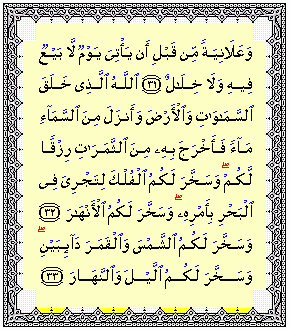 وَعَلَانِيَةً مِّن قَبْلِ أَن يَأْتِىَ يَوْمٌ لَّا بَيْعٌ
فِيهِ وَلَا خِلَـٰلٌ ﴿٣١﴾ ٱللَّهُ ٱلَّذِى خَلَقَ
ٱلسَّمَـٰوَٰتِ وَٱلْأَرْضَ وَأَنزَلَ مِنَ ٱلسَّمَآءِ
مَآءً فَأَخْرَجَ بِهِۦ مِنَ ٱلثَّمَرَٰتِ رِزْقًا
لَّكُمْ ۖ وَسَخَّرَ لَكُمُ ٱلْفُلْكَ لِتَجْرِىَ فِى
ٱلْبَحْرِ بِأَمْرِهِۦ ۖ وَسَخَّرَ لَكُمُ ٱلْأَنْهَـٰرَ ﴿٣٢﴾
وَسَخَّرَ لَكُمُ ٱلشَّمْسَ وَٱلْقَمَرَ دَآئِبَيْنِ ۖ
وَسَخَّرَ لَكُمُ ٱلَّيْلَ وَٱلنَّهَارَ ﴿٣٣﴾